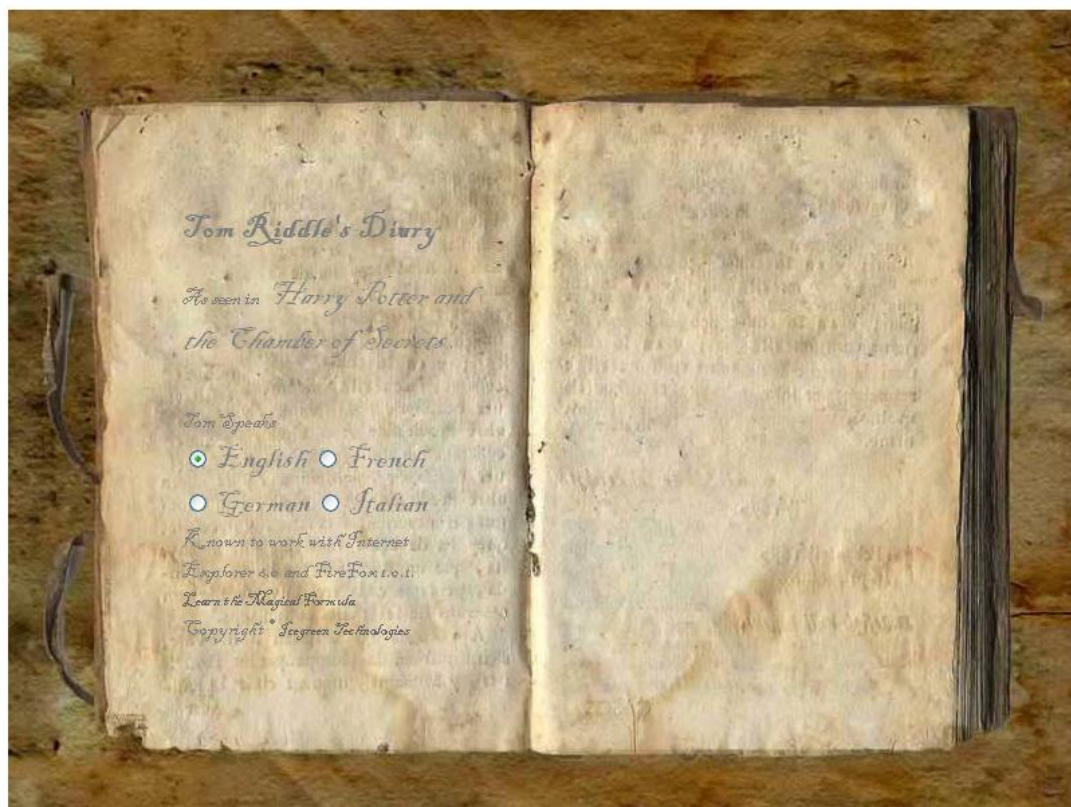 Tom Riddle's Diary
As seen in Harry Potter and
the Chamber of Secrets.
Tom Speaks
English French
German Italian
Known to work with Internet
Explorer 6.0 and FireFox 1.0.1.
Learn the Magical Formula
Copyright © Icegreen Technologies